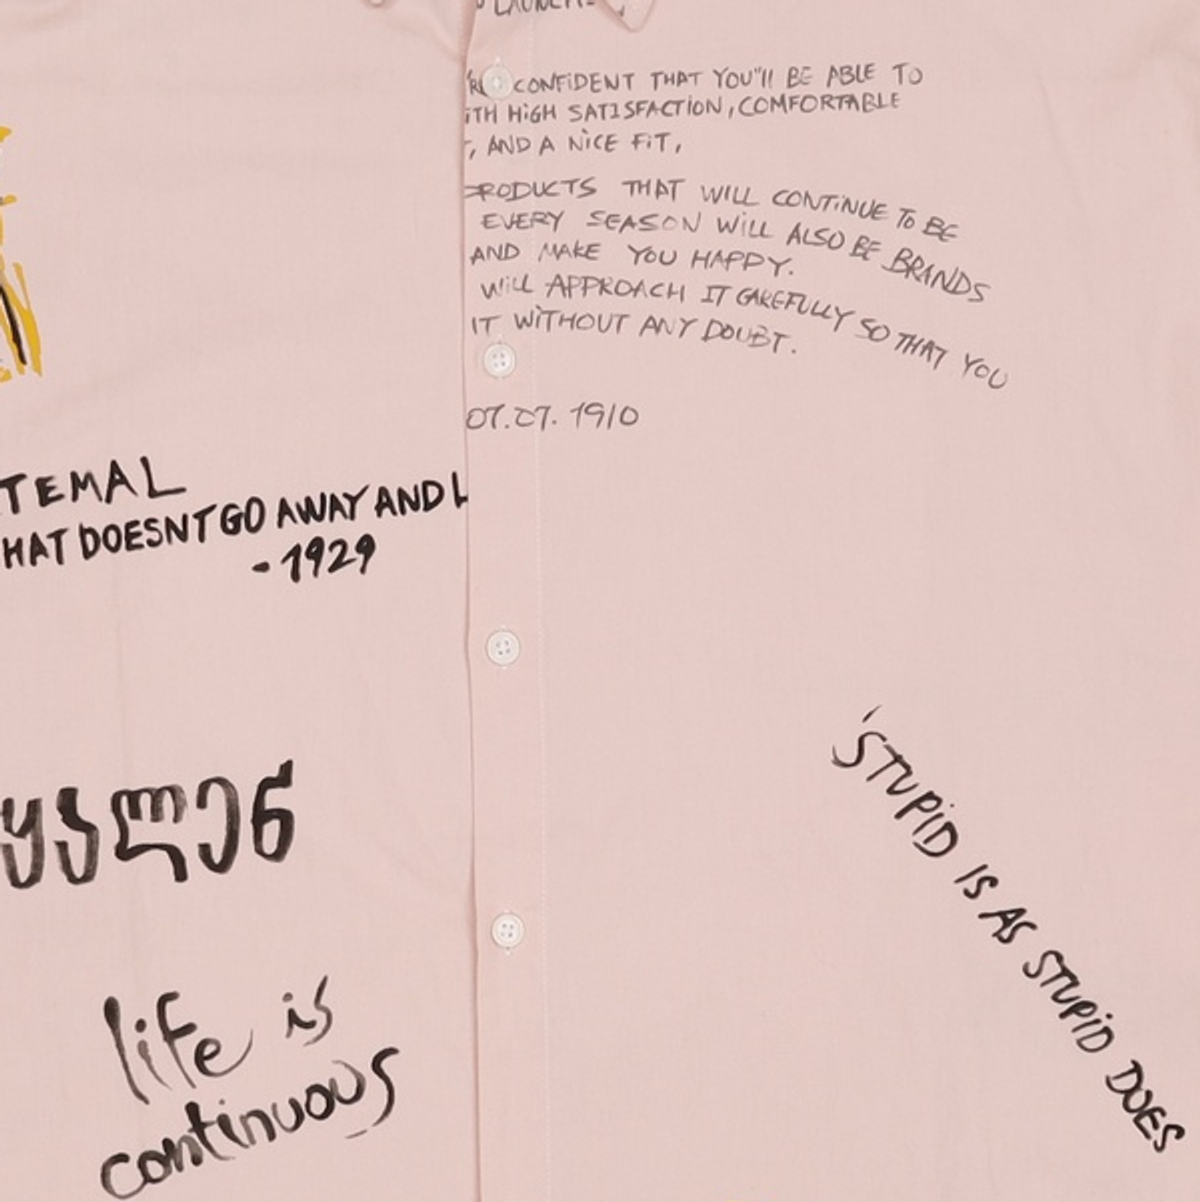 CONFIDENT THAT YOU"ll BE ABLE TO
iTH HiGH SATISFACTION, COMFORTABLE
, AND A NiCE FiT,
PRODUCTS THAT WILL CONTiNUE TO BE
EVERY SEASON WiLL ALSO BE BRANDS
AND MAKE YOU HAPPY.
WiLL APPROACH IT CAREFULLY SO THAT YOU
IT WiTHOUT ANY DOUBT.
07.07. 1910
TEMAL
HAT DOESNT GO AWAY AND L
- 1929
'STUPiD IS AS STUPiD DOES
life is
continuous